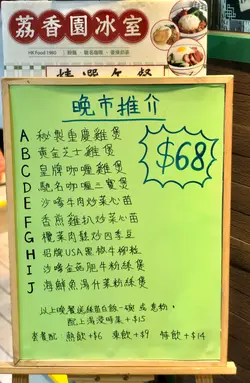 荔香園冰室
HK Food 1980
晚市推介
$68
A 秘製重慶雞煲
B 黃金芝士雞煲
C 皇牌咖喱雞煲
D 馳名咖喱三寶煲
E 沙嗲牛肉炒菜心苗
F 香煎雞扒炒菜心苗
G 欖菜肉鬆炒四季豆
H 招牌USA黑椒牛柳粒
I 沙嗲金菇肥牛粉絲煲
J 海鮮魚湯什菜粉絲煲
以上晚餐送絲苗白飯一碗 或意粉,
配上湯浸時菜 +$15
套餐配 熱飲 +$6 凍飲 +$9 特飲 +$14